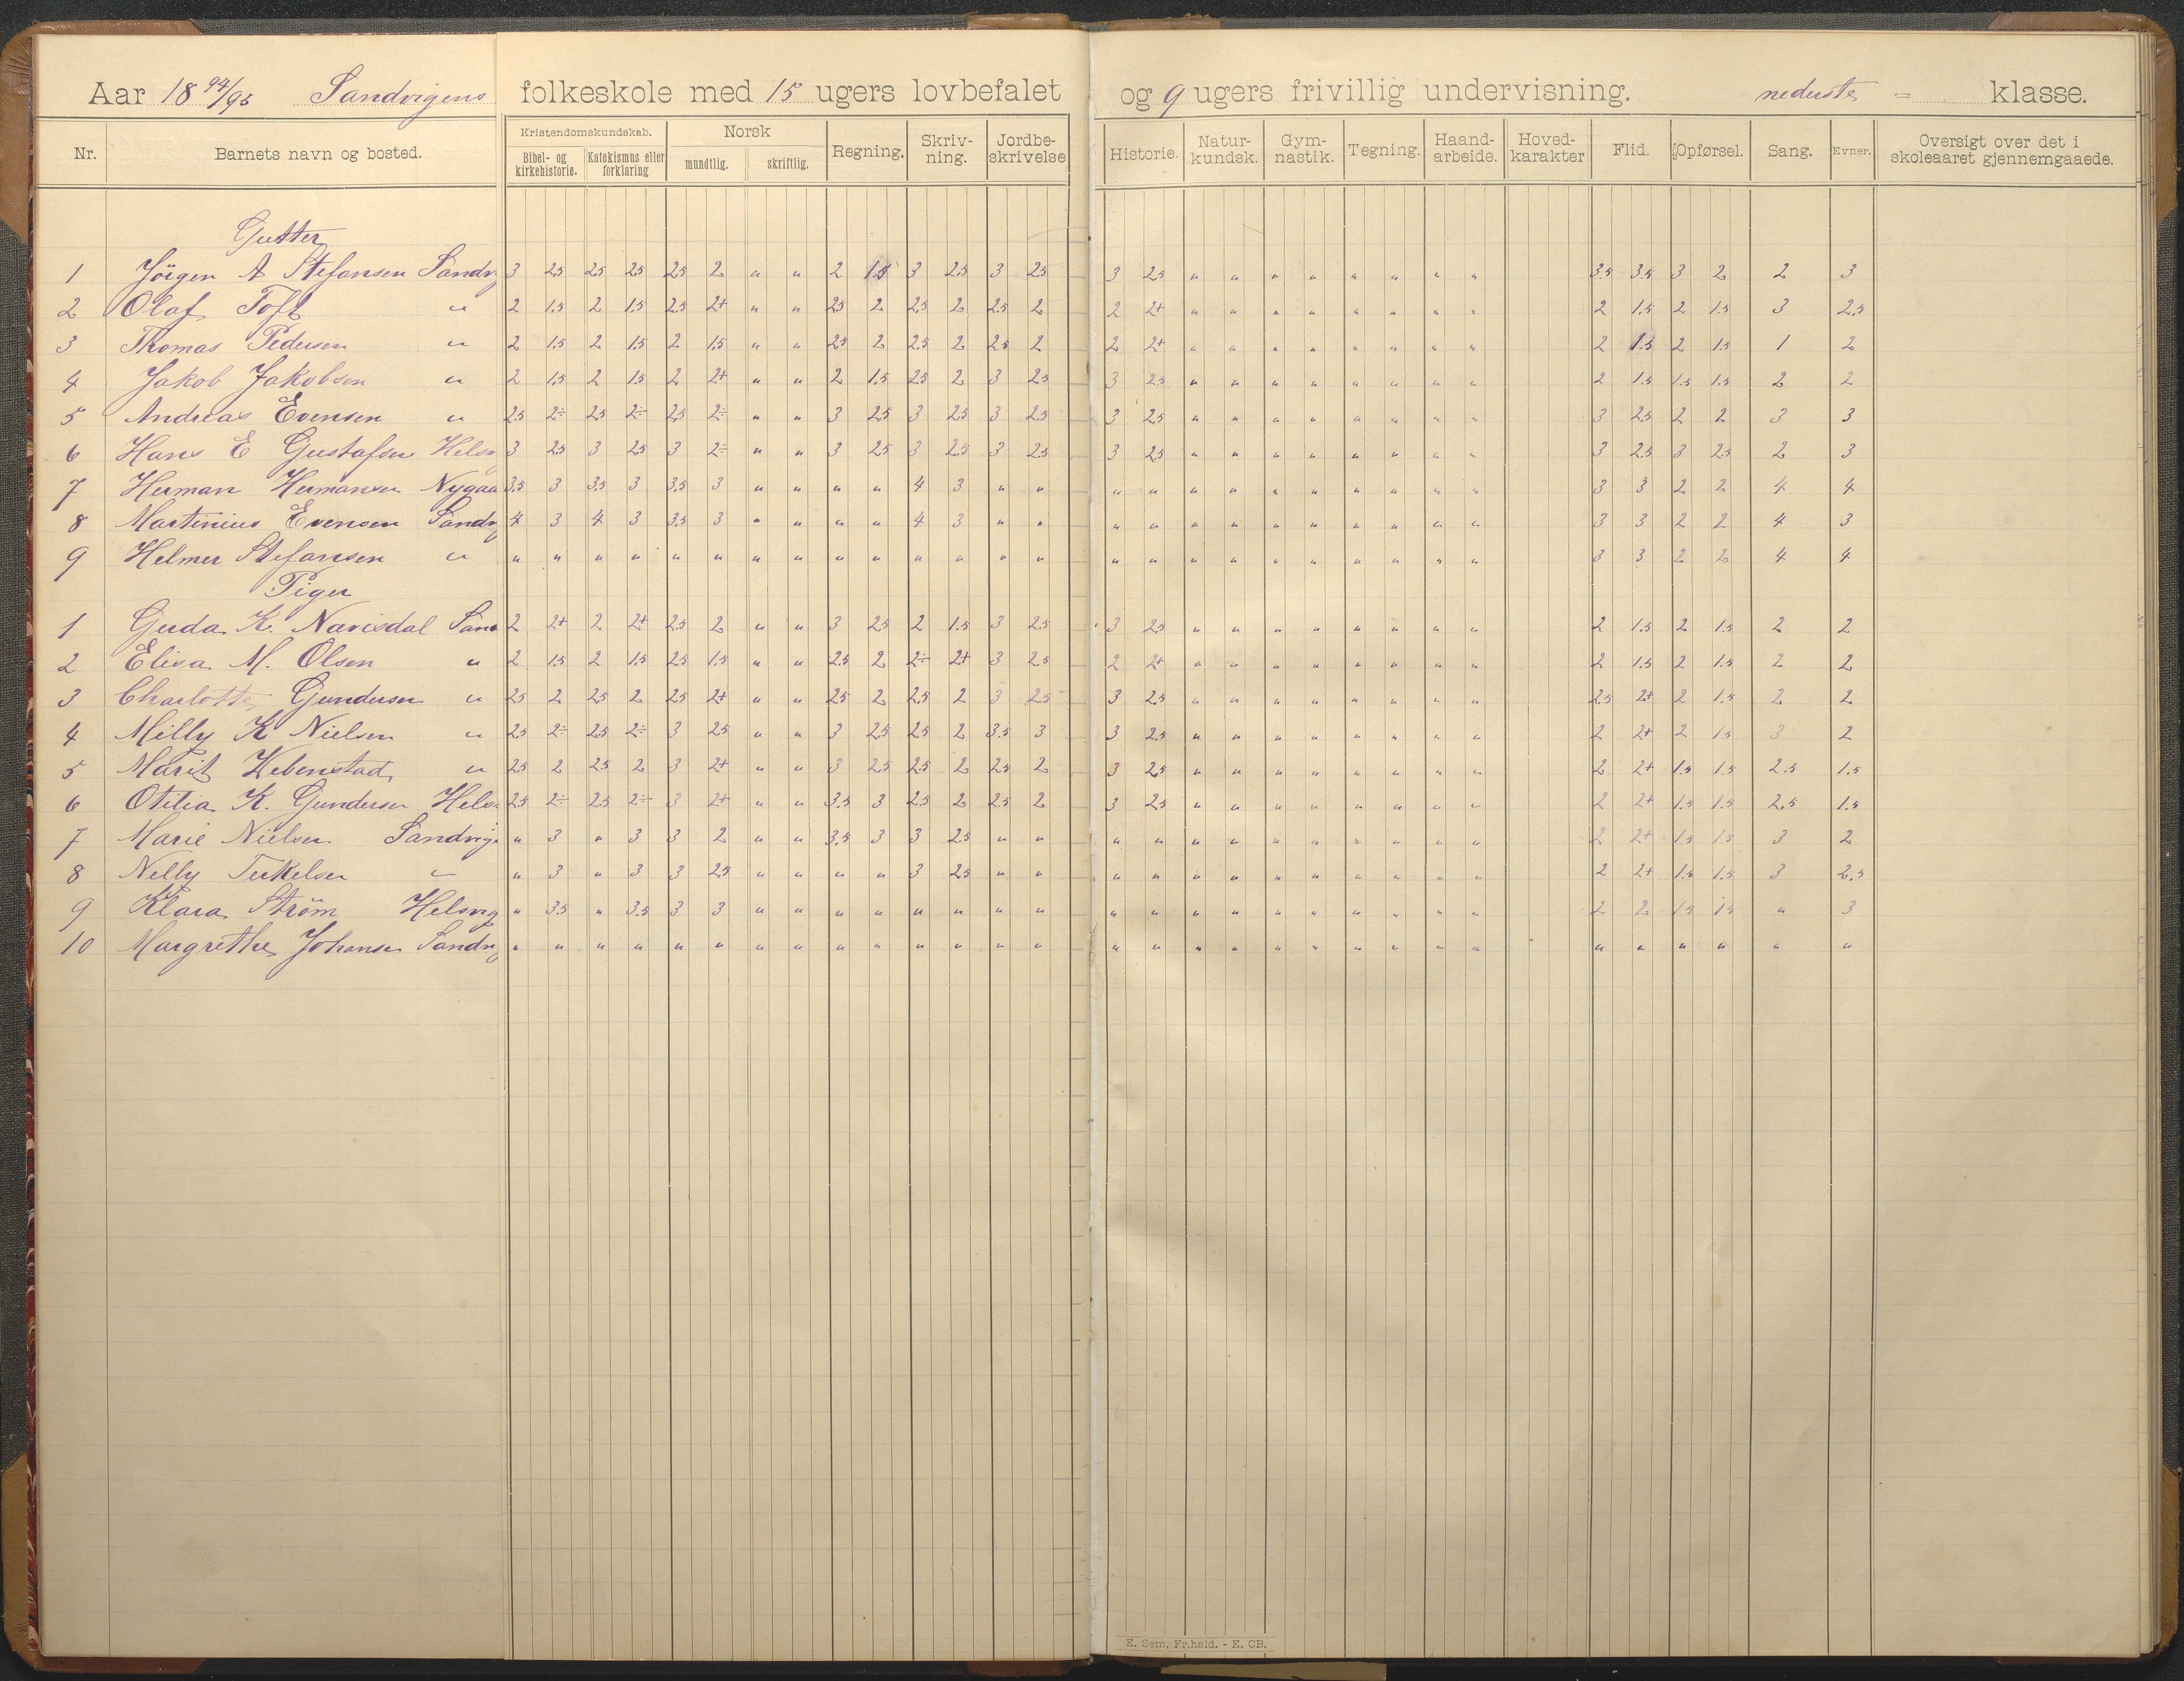 Aar 18 94/95 Sandvigens folkeskole med 15 ugers lovbefalet og 9 ugers frivillig undervisning. nederste = klasse.
Nr. Barnets navn og bosted. Kristendomskundskab. Bibel- og kirkehistorie. Katekismus eller forklaring Norsk mundtlig. skriftlig. Regning. Skriv-ning. Jordbe-skrivelse Historie. Natur-kundsk. Gym-nastik. Tegning. Haand-arbeide. Hoved-karakter Flid. Opførsel. Sang. Evner. Oversigt over det i skoleaaret gjennemgaaede.
Gutter
1 Jörgen A Stefansen Sandv 3 2.5 2.5 2.5 2.5 2 " " 2 1.5 3 2.5 3 2.5 3 2.5 " " " " " " " " 3.5 3.5 3 2 2 3
2 Olaf Toft " 2 1.5 2 1.5 2.5 2+ " " 2.5 2 2.5 2 2.5 2 2 2+ " " " " " " " " 2 1.5 2 1.5 3 2.5
3 Thomas Pedersen " 2 1.5 2 1.5 2 1.5 " " 2.5 2 2.5 2 2.5 2 2 2+ " " " " " " " " 2 1.5 2 1.5 1 2
4 Jakob Jakobsen " 2 1.5 2 1.5 2 2+ " " 2 1.5 2.5 2 3 2.5 3 2.5 " " " " " " " " 2 1.5 1.5 1.5 2 2
5 Andreas Evensen " 2.5 2÷ 2.5 2÷ 2.5 2÷ " " 3 2.5 3 2.5 3 2.5 3 2.5 " " " " " " " " 3 2.5 2 2 3 3
6 Hans E Gustafsen Helsv 3 2.5 3 2.5 3 2÷ " " 3 2.5 3 2.5 3 2.5 3 2.5 " " " " " " " " 3 2.5 3 2.5 2 3
7 Herman Hermansen Nygaa 3.5 3 3.5 3 3.5 3 " " " " 4 3 " " " " " " " " " " " " 3 3 2 2 4 4
8 Martinius Evensen Sandv 4 3 4 3 3.5 3 " " " " 4 3 " " " " " " " " " " " " 3 3 2 2 4 3
9 Helmer Stefansen " " " " " " " " " " " " " " " " " " " " " " " " " 3 3 2 2 4 4
Piger
1 Gerda K. Nærisdal Sand 2 2+ 2 2+ 2.5 2 " " 3 2.5 2 1.5 3 2.5 3 2.5 " " " " " " " " 2 1.5 2 1.5 2 2
2 Elisa M. Olsen " 2 1.5 2 1.5 2.5 1.5 " " 2.5 2 2÷ 2+ 3 2.5 2 2+ " " " " " " " " 2 1.5 2 1.5 2 2
3 Charlotte Gundersen " 2.5 2 2.5 2 2.5 2+ " " 2.5 2 2.5 2 3 2.5 3 2.5 " " " " " " " " 2.5 2+ 2 1.5 2 2
4 Milly K Nielsen " 2.5 2÷ 2.5 2÷ 3 2.5 " " 3 2.5 2.5 2 3.5 3 3 2.5 " " " " " " " " 2 2+ 2 1.5 3 2
5 Marit Hebenstad " 2.5 2 2.5 2 3 2+ " " 3 2.5 2.5 2 2.5 2 3 2.5 " " " " " " " " 2 2+ 1.5 1.5 2.5 1.5
6 Otilia K. Gundersen Helsv 2.5 2÷ 2.5 2÷ 3 2+ " " 3.5 3 2.5 2 2.5 2 3 2.5 " " " " " " " " 2 2+ 1.5 1.5 2.5 1.5
7 Marie Nielsen Sandvig " 3 " 3 3 2 " " 3.5 3 3 2.5 " " " " " " " " " " " " 2 2+ 1.5 1.5 3 2
8 Nelly Terkelsen " " 3 " 3 3 2.5 " " " " 3 2.5 " " " " " " " " " " " " 2 2+ 1.5 1.5 3 2.5
9 Klara Strøm Helsvig " 3.5 " 3.5 3 3 " " " " " " " " " " " " " " " " " " 2 2 1.5 1.5 " 3
10 Margrethe Johansen Sandv " " " " " " " " " " " " " " " " " " " " " " " " " " " " " "
E. Sem, Fr.hald. - E. CB.